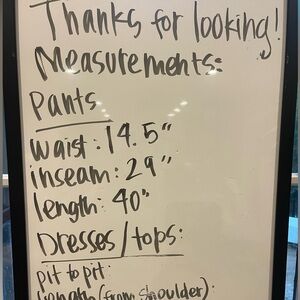 Thanks for looking!
Measurements:
Pants
waist: 14.5"
inseam: 29"
length: 40"
Dresses/tops:
pit to pit:
length (from shoulder):